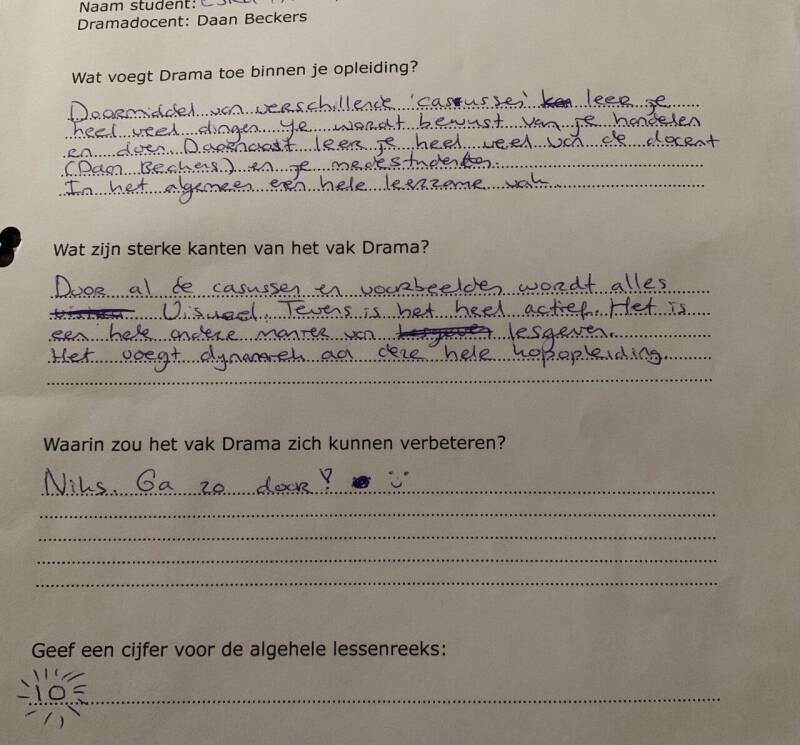 Naam student:
Dramadocent: Daan Beckers
Wat voegt Drama toe binnen je opleiding?
Doormiddel van verschillende 'casusses' leer je
heel veel dingen. Je wordt bewust van je handelen
en doen. Daarnaast leer je heel veel van de docent
(Daan Beckers) en je medestudenten.
In het algemeen een hele leerzame vak.
Wat zijn sterke kanten van het vak Drama?
Door al de casussen en voorbeelden wordt alles
Visueel. Tevens is het heel actief. Het is
een hele andere manier van lesgeven.
Het voegt dynamiek aa deze hele hbopopleiding.
Waarin zou het vak Drama zich kunnen verbeteren?
Niks. Ga zo door!
Geef een cijfer voor de algehele lessenreeks:
10